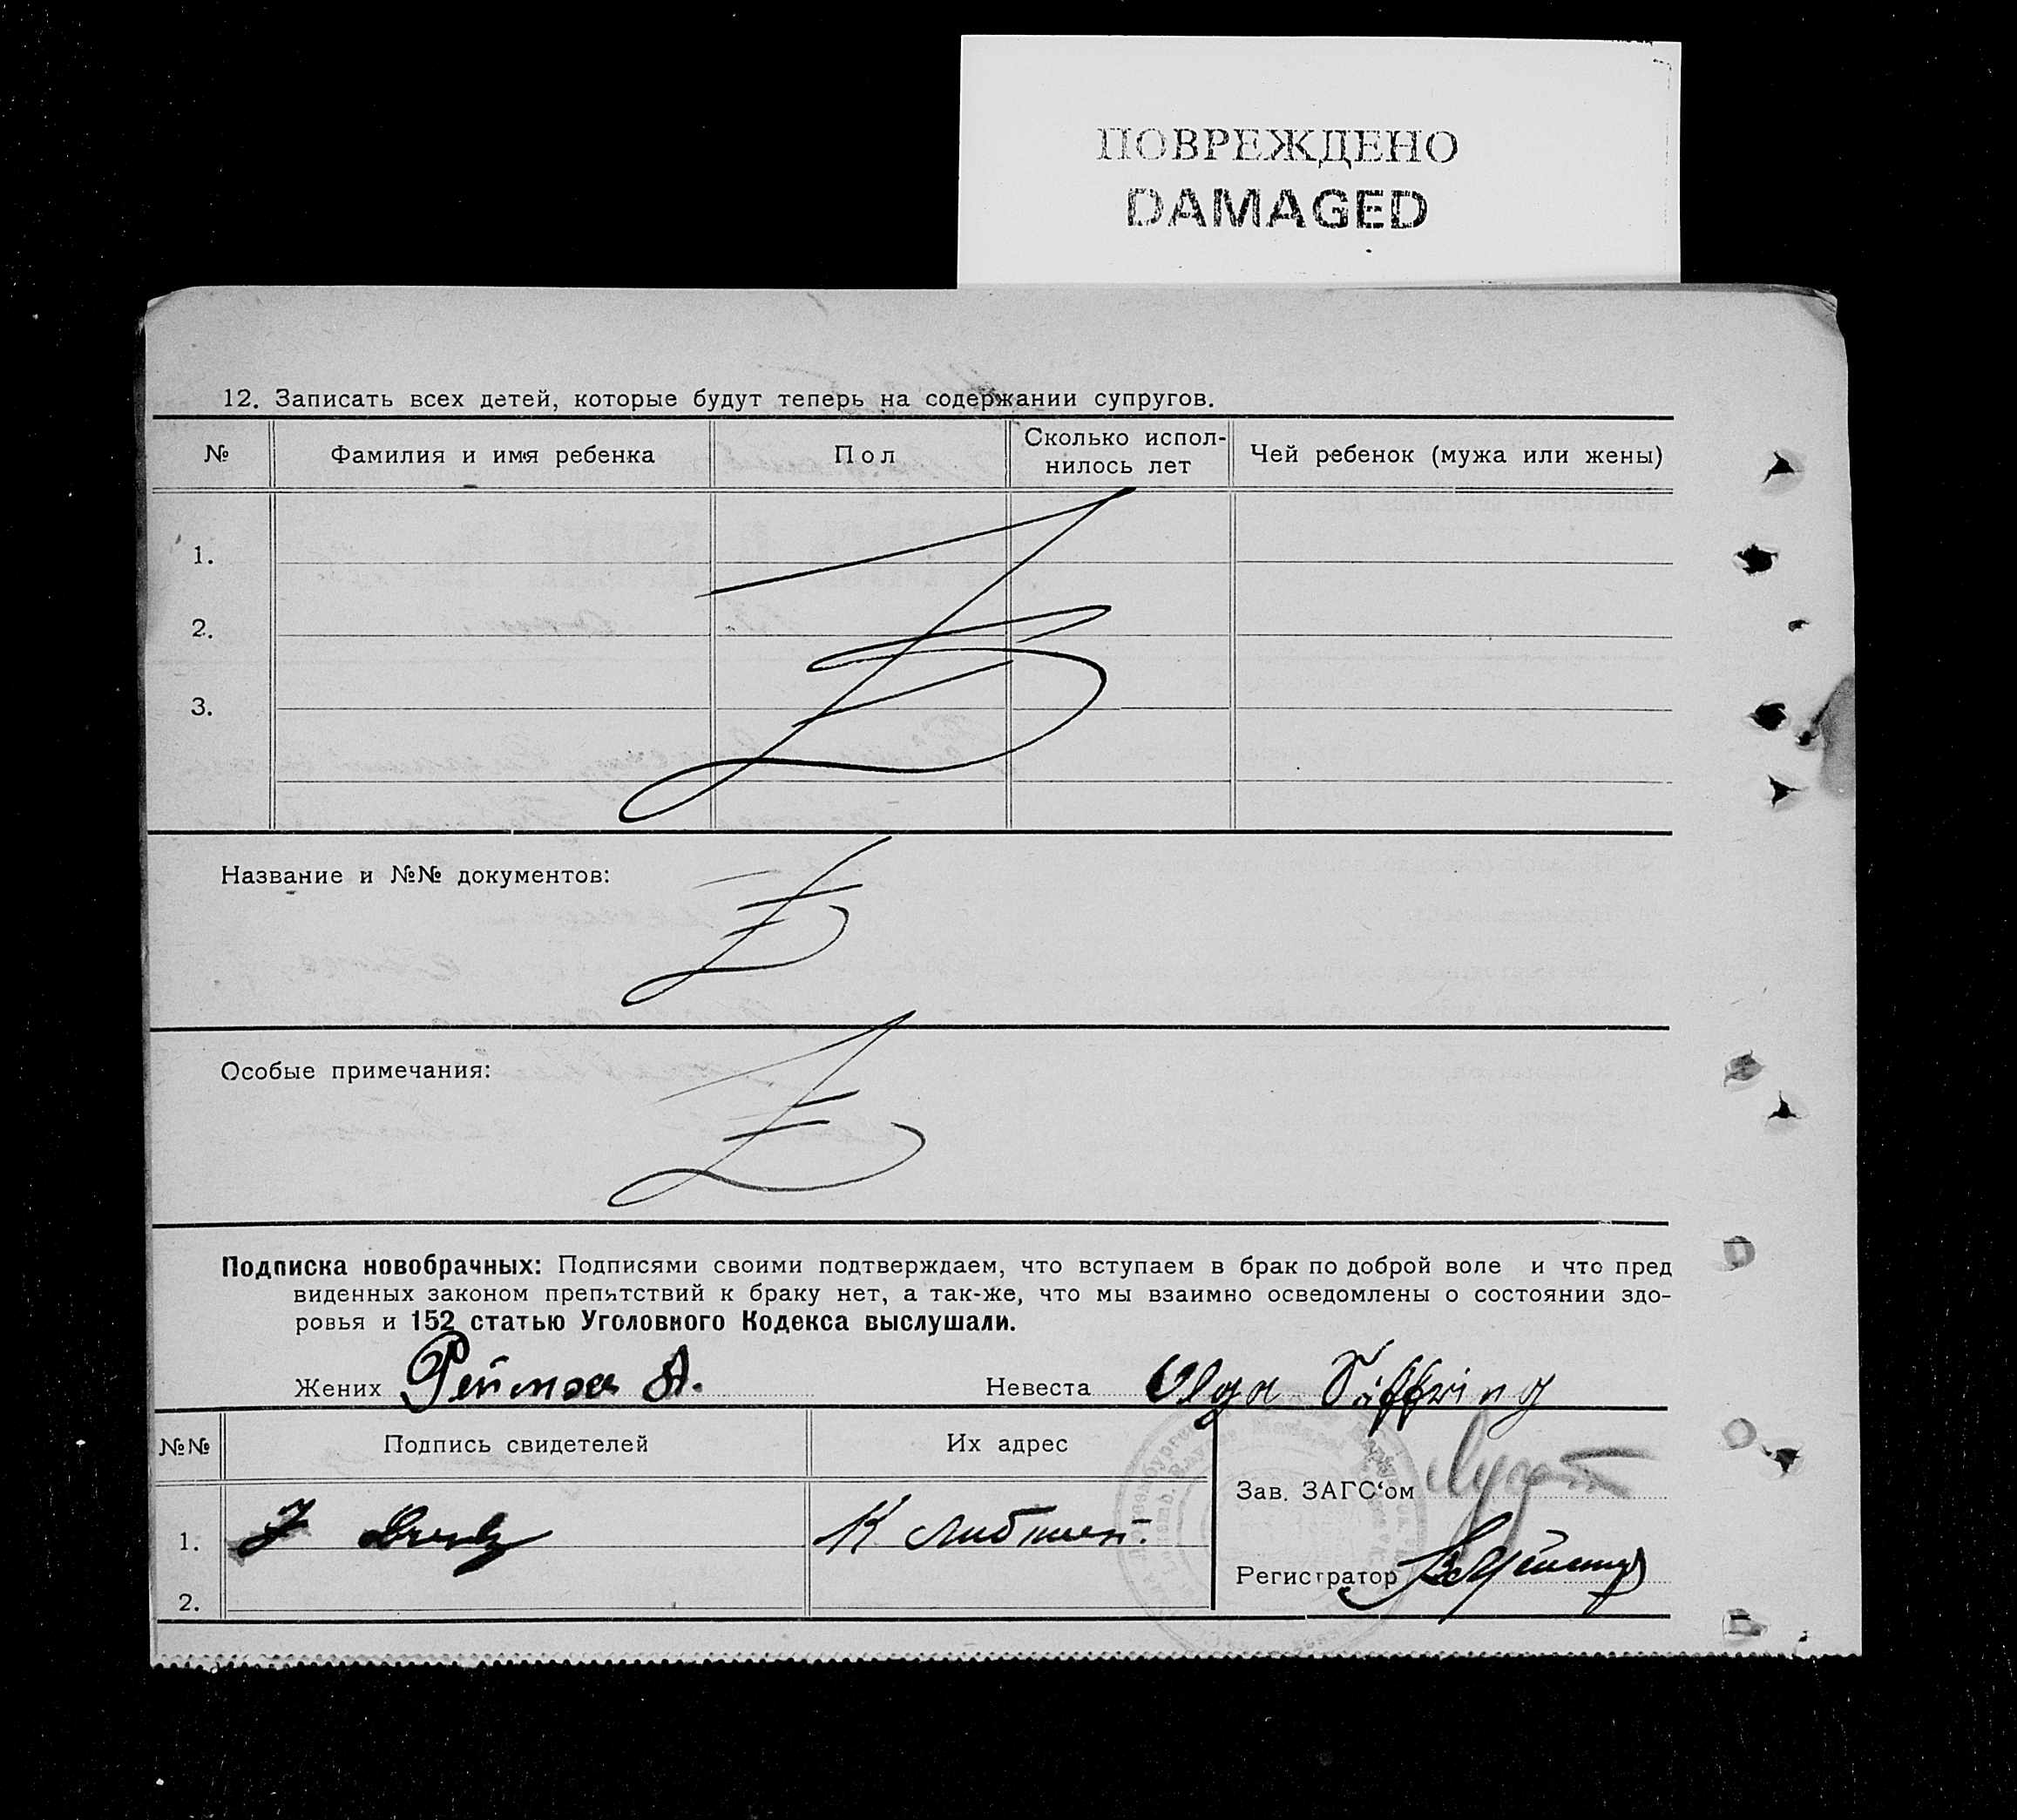 ПОВРЕЖДЕНО
DAMAGED
12. Записать всех детей, которые будут теперь на содержании супругов.
№
Фамилия и имя ребенка
Пол
Сколько испол-
нилось лет
Чей ребенок (мужа или жены)
1.
2.
3.
Название и №№ документов:
Особые примечания:
Подписка новобрачных: Подписями своими подтверждаем, что вступаем в брак по доброй воле и что пред
виденных законом препятствий к браку нет, а так-же, что мы взаимно осведомлены о состоянии здо-
ровья и 152 статью Уголовного Кодекса выслушали.
Жених
Невеста Olga Säffring
№№
Подпись свидетелей
Их адрес
Зав. ЗАГС'ом
1.
Регистратор
2.